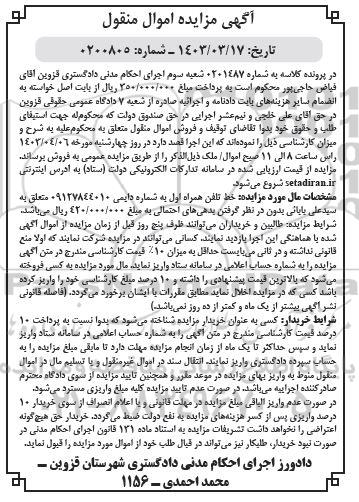 آگهی مزایده اموال منقول
تاریخ: ۱۴۰۳/۰۳/۱۷ ــ شماره: ۰۲۰۰۸۰۵
در پرونده کلاسه به شماره ۰۲۰۱۴۸۷ شعبه سوم اجرای احکام مدنی دادگستری قزوین آقای
فیاض حاجی‌پور محکوم است به پرداخت مبلغ ۳۵۰/۰۰۰/۰۰۰ ریال از بابت اصل خواسته به
انضمام سایر هزینه‌های بابت دادنامه و اجرائیه صادره از شعبه ۷ دادگاه عمومی حقوقی قزوین
در حق آقای علی خلجی و نیم‌عشر اجرایی در حق صندوق دولت که محکوم‌له جهت استیفای
طلب و حقوق خود بدوا تقاضای توقیف و فروش اموال منقول متعلق به محکوم‌علیه به شرح و
میزان کارشناسی ذیل را نموده‌اند که این اجرا قصد دارد در روز چهارشنبه مورخه ۱۴۰۳/۰۴/۰۶
راس ساعت ۸ الی ۱۱ صبح اموال/ ملک ذیل‌الذکر را از طریق مزایده عمومی به فروش برساند.
مزایده از قیمت ارزیابی شده در سامانه تدارکات الکترونیکی دولت (ستاد) به آدرس اینترنتی
setadiran.ir شروع می‌شود.
مشخصات مال مورد مزایده: خط تلفن همراه اول به شماره دایمی ۰۹۱۲۷۸۴۴۰۱۰ متعلق به
سیدعلی بابائی بدون در نظر گرفتن بدهی‌های احتمالی به مبلغ ۴۲۰/۰۰۰/۰۰۰ ریال می‌باشد.
شرایط مزایده: طالبین و خریداران می‌توانند ظرف پنج روز قبل از زمان مزایده از اموال آگهی
شده با هماهنگی این اجرا بازدید نمایند. کسانی می‌توانند در مزایده شرکت نمایند که اولا منع
قانونی نداشته و در ثانی می‌بایست حداقل به میزان ۱۰٪ قیمت کارشناسی مندرج در متن آگهی
مزایده را به شماره حساب اعلامی در سامانه ستاد واریز نماید. مال مورد مزایده به کسی فروخته
می‌شود که بالاترین قیمت پیشنهادی را داشته و ۱۰ درصد مبلغ کارشناسی خود را واریز کرده
باشد کسی که در مزایده اخلال نماید مطابق مقررات با ایشان برخورد می‌گردد. (فاصله قانونی
نشر آگهی بیشتر از یک ماه و کمتر از ده روز نمی‌باشد)
شرایط خریدار: کسی به عنوان خریدار مزایده شناخته می‌شود که بدوا نسبت به پرداخت ۱۰
درصد قیمت کارشناسی مندرج در متن آگهی را به شماره حساب اعلامی در سامانه ستاد واریز
نماید و سپس حداکثر تا یک ماه از زمان انجام مزایده مهلت دارد تا مابقی مبلغ مزایده را به
حساب سپرده دادگستری واریز نمایند انتقال سند در اموال غیرمنقول و یا تسلیم مال در اموال
منقول منوط به واریز بهای مزایده در موعد مقرر و همچنین تایید مزایده از سوی دادگاه محترم
صادرکننده اجراییه می‌باشد. در صورت عدم تایید مزایده کلیه مبلغ واریزی مسترد می‌شود.
در صورت عدم واریز الباقی مبلغ مزایده در مهلت قانونی و یا اعلام انصراف از سوی خریدار ۱۰
درصد واریزی پس از کسر هزینه‌های مزایده به نفع دولت ضبط می‌گردد. خریدار حق هیچ‌گونه
اعتراضی را نخواهد داشت تشریفات مزایده به استناد ماده ۱۳۱ قانون اجرای احکام مدنی در
صورت نبود خریدار، طلبکار نیز می‌تواند در قبال طلب خود از اموال مورد مزایده را قبول نماید.
دادورز اجرای احکام مدنی دادگستری شهرستان قزوین ــ
محمد احمدی ــ ۱۱۵۶